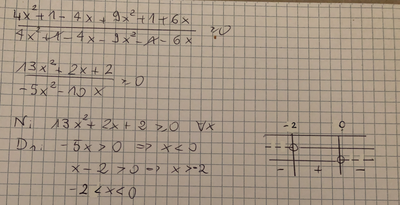 4x²+1-4x+9x²+1+6x
4x²+1-4x-9x²-1-6x ≥0
13x²+2x+2
-5x²-10x ≥0
N: 13x²+2x+2≥0 ∀x
D: -5x>0 => x<0
x-2>0 => x>-2
-2<x<0
-2 0
- + -